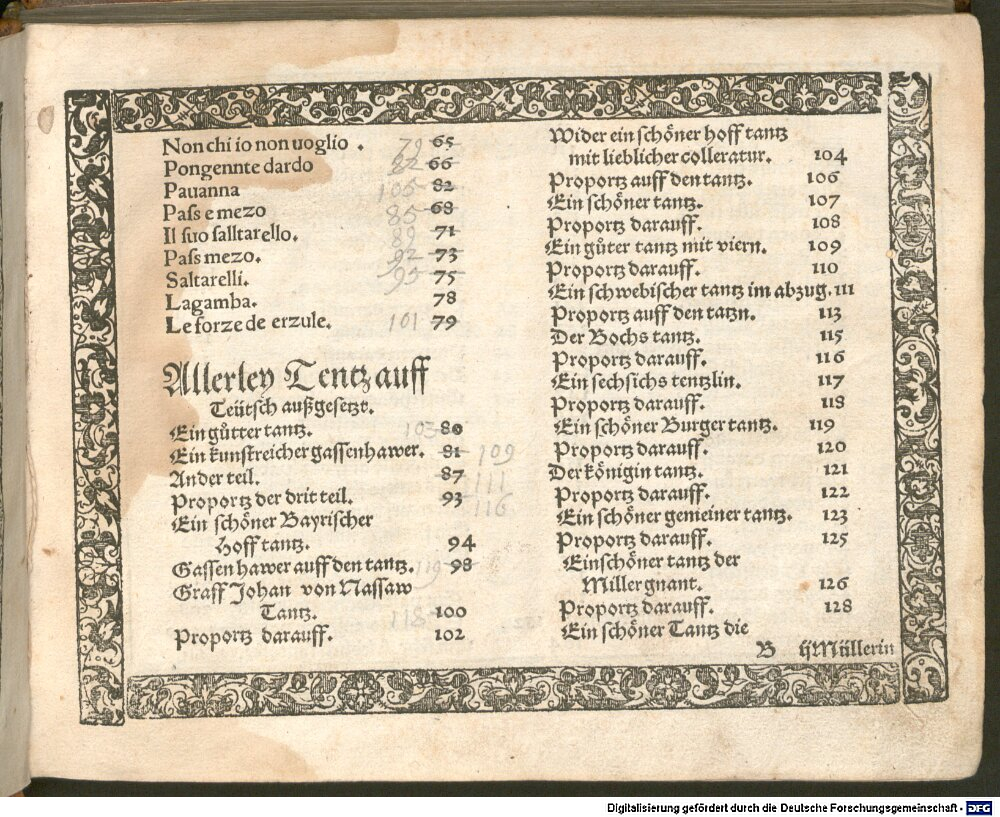 Non chi io non uoglio . 79 65
Pongennte dardo 82 66
Pauanna 105 82
Paſs e mezo 85 68
Il ſuo ſalltarello. 89 71
Paſs mezo. 92 73
Saltarelli. 95 75
Lagamba. 78
Le forze de erzule. 101 79
Allerley Tentz auff
Teütſch außgeſetzt.
Ein gůtter tantz. 103 80
Ein kunſtreicher gaſſenhawer. 81 109
Ander teil. 87 111
Proportz der drit teil. 93 116
Ein ſchöner Bayriſcher
Hoff tantz. 94
Gaſſen hawer auff den tantz. 98
Graff Johan von Naſſaw
Tantz. 100 118
Proportz darauff. 102
Wider ein ſchöner hoff tantz
mit lieblicher colleratur. 104
Proportz auff den tantz. 106
Ein ſchöner tantz. 107
Proportz darauff. 108
Ein gůter tantz mit viern. 109
Proportz darauff. 110
Ein ſchwebiſcher tantz im abzug. 111
Proportz auff den tatzn. 113
Der Bochs tantz. 115
Proportz darauff. 116
Ein ſechſichs tentzlin. 117
Proportz darauff. 118
Ein ſchöner Burger tantz. 119
Proportz darauff. 120
Der königin tantz. 121
Proportz darauff. 122
Ein ſchöner gemeiner tantz. 123
Proportz darauff. 125
Ein ſchöner tantz der
Miller gnant. 126
Proportz darauff. 128
Ein ſchöner Tantz die
B ij Müllerin
Digitalisierung gefördert durch die Deutsche Forschungsgemeinschaft - DFG